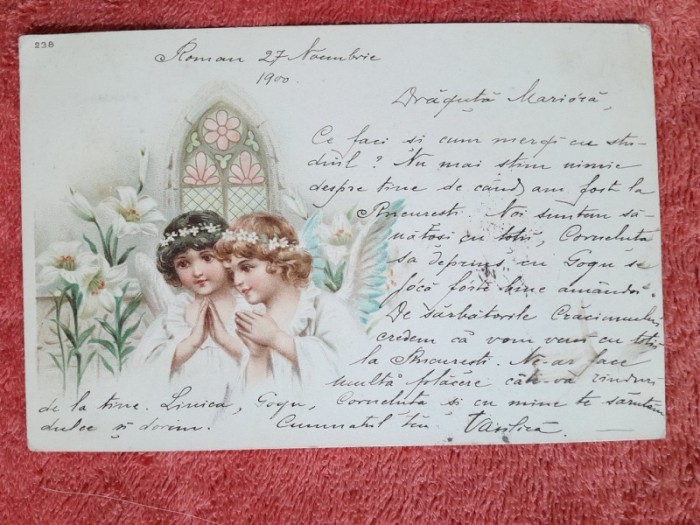 238
Roman 27 Noembrie
1900.
Drăguță Marioră,
Ce faci si cum mergi cu stu-
diul? Nu mai stim nimic
despre tine de când am fost la
București. Noi suntem să-
nătosi cu toții, Corneluta
sa deprins cu Gogu se
jócă fóste bine amândoi.
De sărbătorile Crăciunului
credem că vom veni cu toții
la București. Ne-ar face
multă plăcere câte-vă rînduri
de la tine. Linica, Gogu, Corneluta si cu mine te sărutăm
dulce și dorim. Cumnatul tău Vasilică